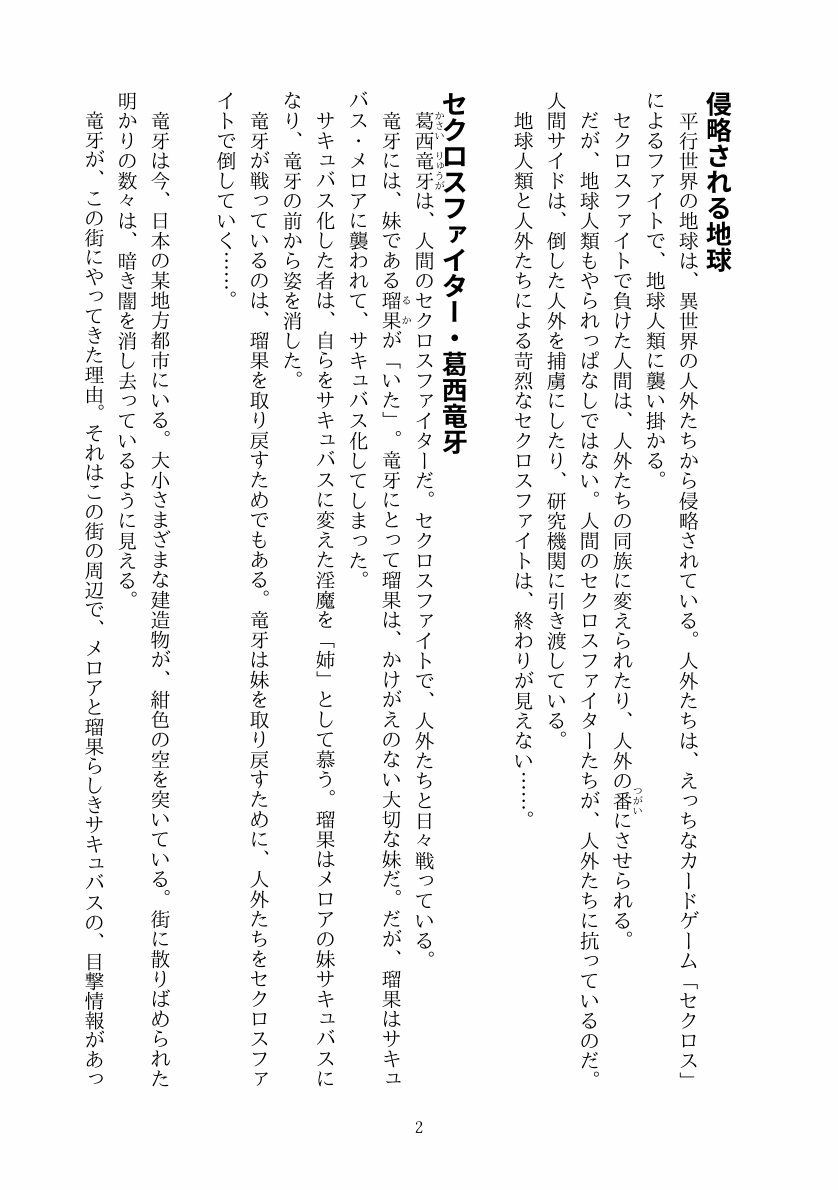 侵略される地球
平行世界の地球は、異世界の人外たちから侵略されている。人外たちは、えっちなカードゲーム「セクロス」
によるファイトで、地球人類に襲い掛かる。
セクロスファイトで負けた人間は、人外たちの同族に変えられたり、人外の番にさせられる。
つがい
だが、地球人類もやられっぱなしではない。人間のセクロスファイターたちが、人外たちに抗っているのだ。
人間サイドは、倒した人外を捕虜にしたり、研究機関に引き渡している。
地球人類と人外たちによる苛烈なセクロスファイトは、終わりが見えない……。
セクロスファイター・葛西竜牙
かさい りゅうが
葛西竜牙は、人間のセクロスファイターだ。セクロスファイトで、人外たちと日々戦っている。
るか
竜牙には、妹である瑠果が「いた」。竜牙にとって瑠果は、かけがえのない大切な妹だ。だが、瑠果はサキュ
バス・メロアに襲われて、サキュバス化してしまった。
サキュバス化した者は、自らをサキュバスに変えた淫魔を「姉」として慕う。瑠果はメロアの妹サキュバスに
なり、竜牙の前から姿を消した。
竜牙が戦っているのは、瑠果を取り戻すためでもある。竜牙は妹を取り戻すために、人外たちをセクロスファ
イトで倒していく……。
竜牙は今、日本の某地方都市にいる。大小さまざまな建造物が、紺色の空を突いている。街に散りばめられた
明かりの数々は、暗き闇を消し去っているように見える。
竜牙が、この街にやってきた理由。それはこの街の周辺で、メロアと瑠果らしきサキュバスの、目撃情報があっ
2